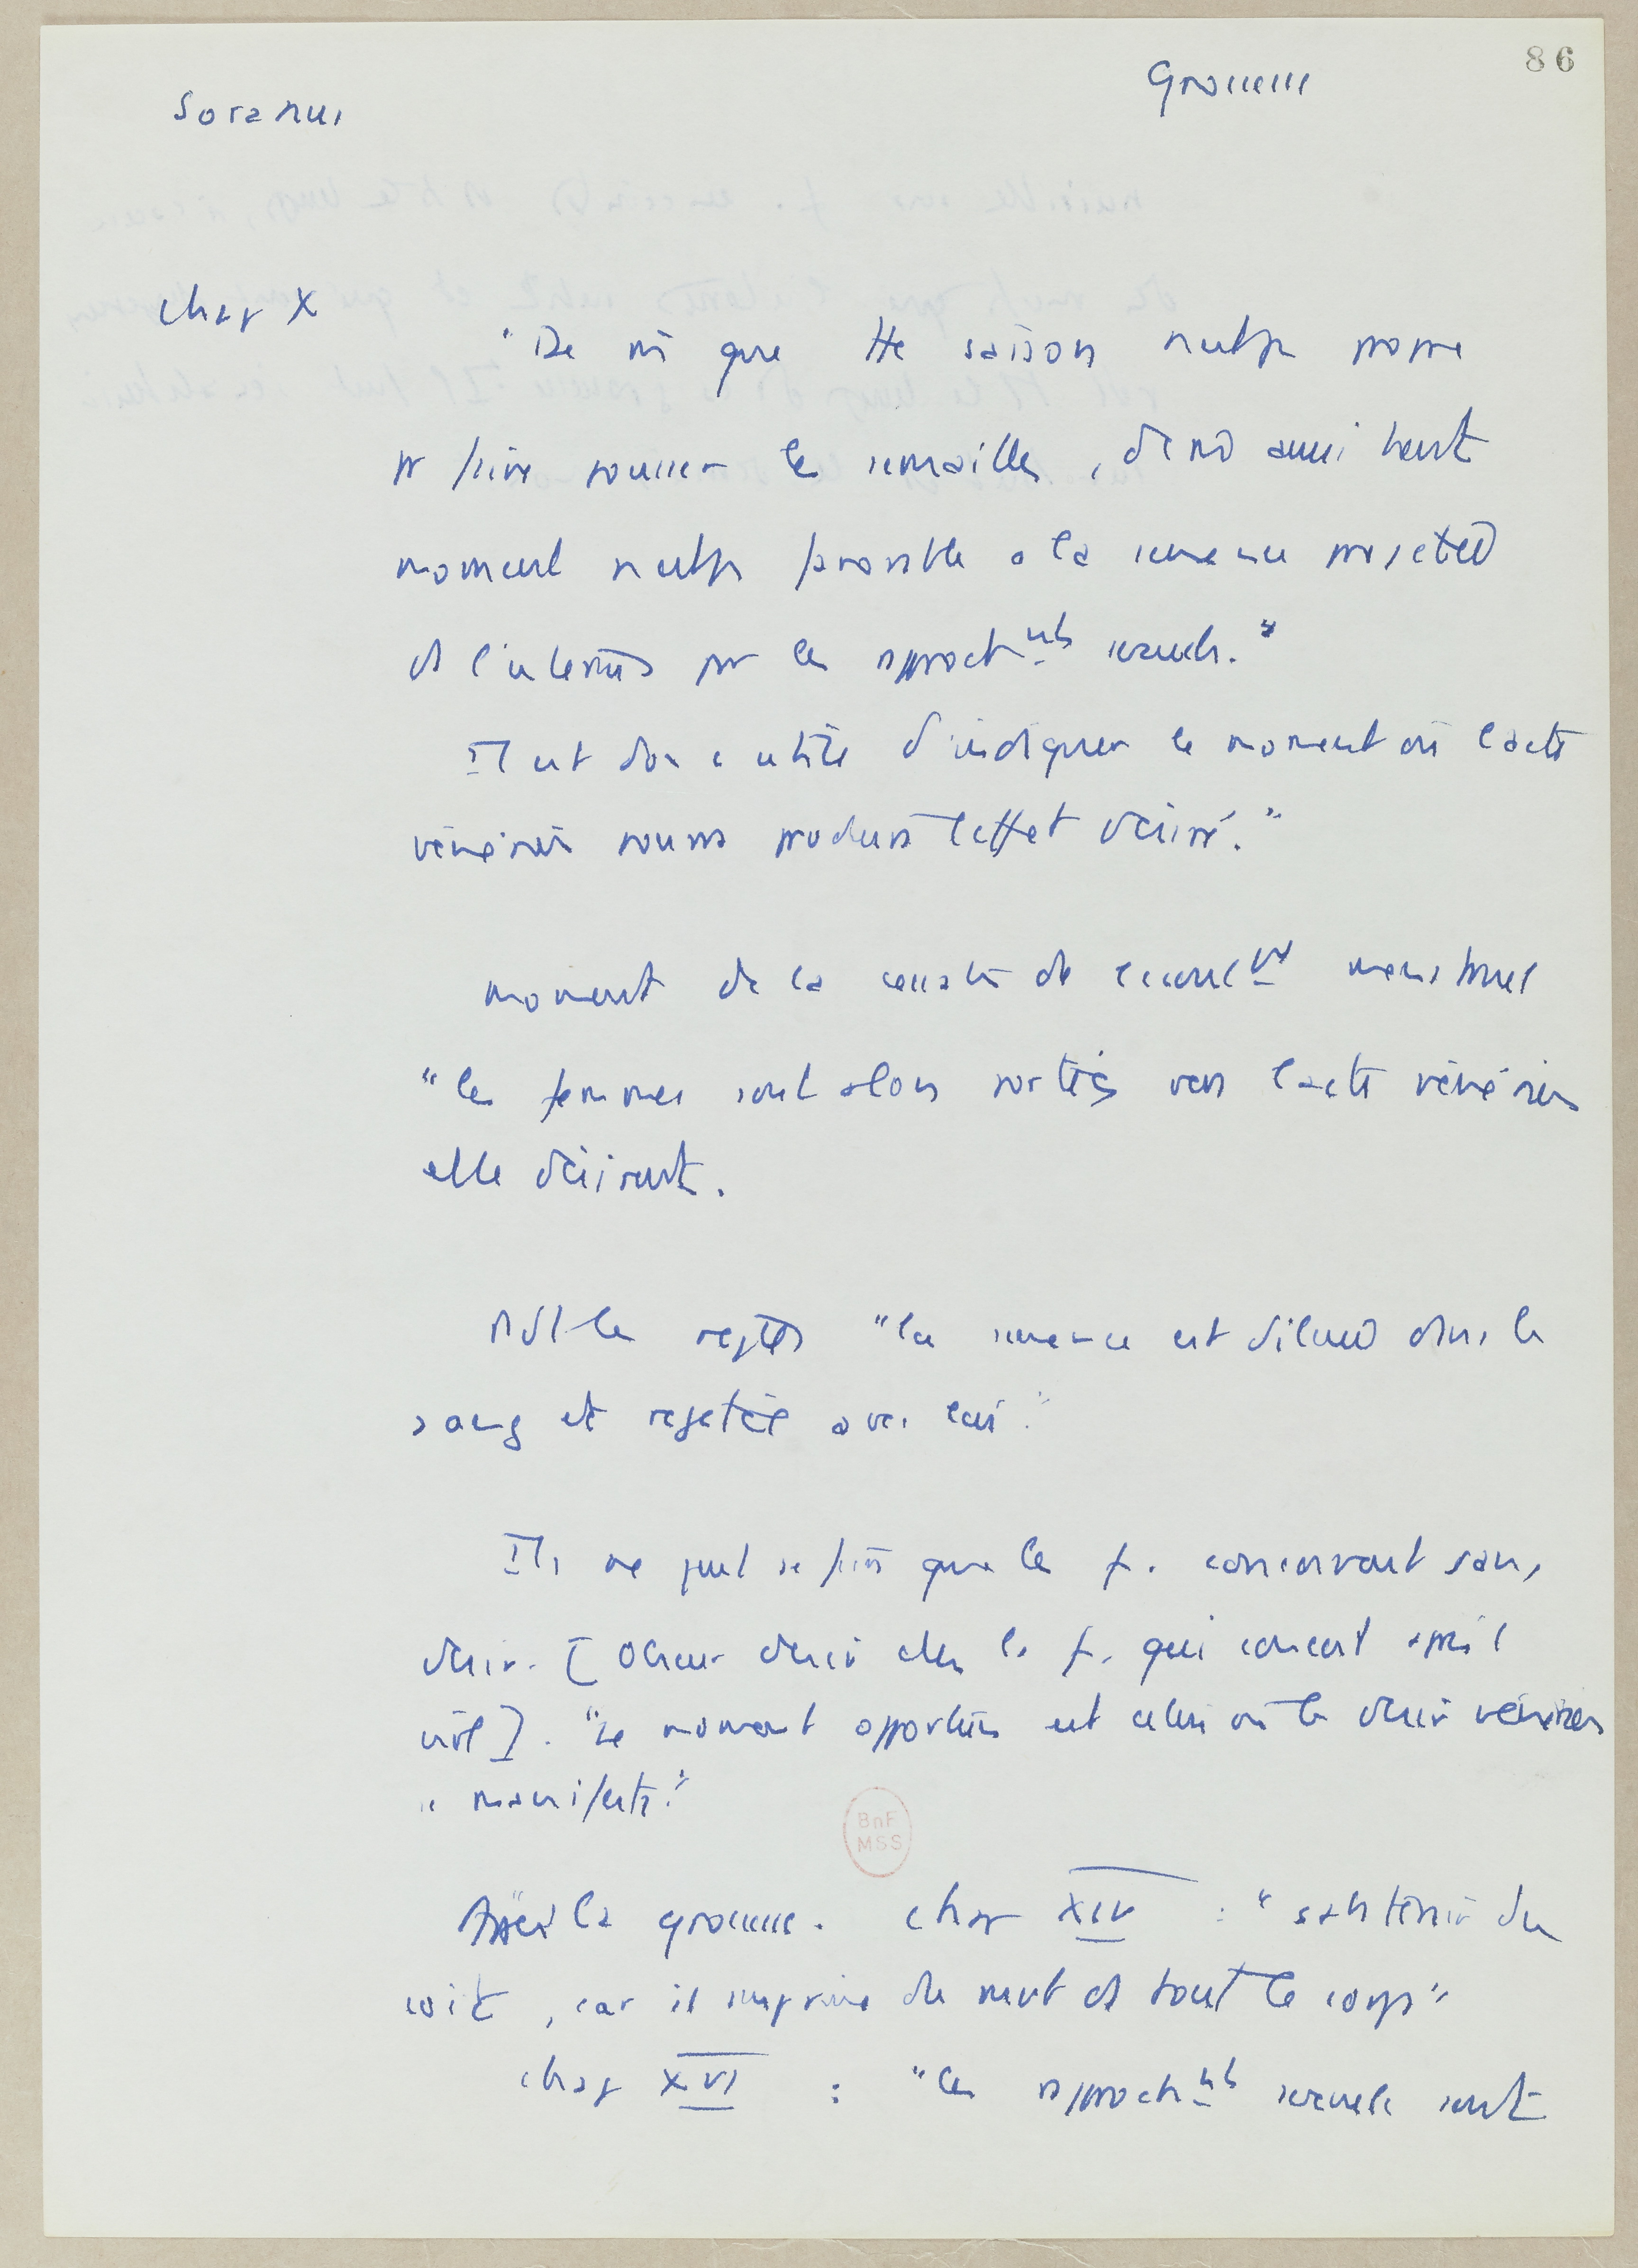 86
Grossesse
Soranus
chap X
"De m que tte saison n'est pas propre
pr faire pousser les semailles, de m aussi tout
moment n'est pas favorable à la semence projetée
ds l'utérus par les rapprochts sexuels."
Il est donc utile d'indiquer le moment où l'acte
vénérien pourra produire l'effet désiré."
moment de la cessation de l'écoult menstruel
"les femmes sont alors portées vers l'acte vénérien
elle désirent.
les règles "la semence est diluée dans le
sang et rejetée avec lui."
Il ne peut se faire que les f. conçoivent sans
désir. [obscur désir chez la f. qui conçoit après l
viol]. "Le moment opportun est celui où le désir vénérien
se manifeste."
Après la grossesse. chap XIV : "s'abstenir du
coït, car il imprime du mvt ds tout le corps"
chap XVI : "les rapprochts sexuels sont
BnF
MSS